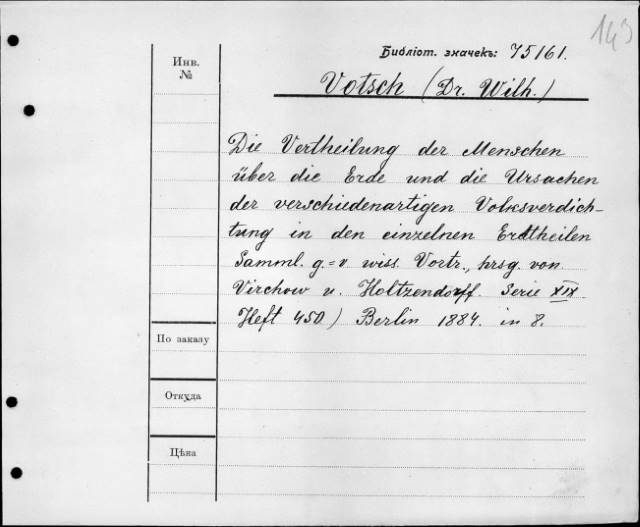 143
Библіот. значекъ: 75161.
Инв.
№
Votsch (Dr. Wilh.)
Die Vertheilung der Menschen
über die Erde und die Ursachen
der verschiedenartigen Volksverdich-
tung in den einzelnen Erdtheilen
Samml. g.=v. wiss. Vortr., hrsg. von
Virchow u. Holtzendorff. Serie XIX
Heft 450) Berlin 1884. in 8.
По заказу
Откуда
Цѣна